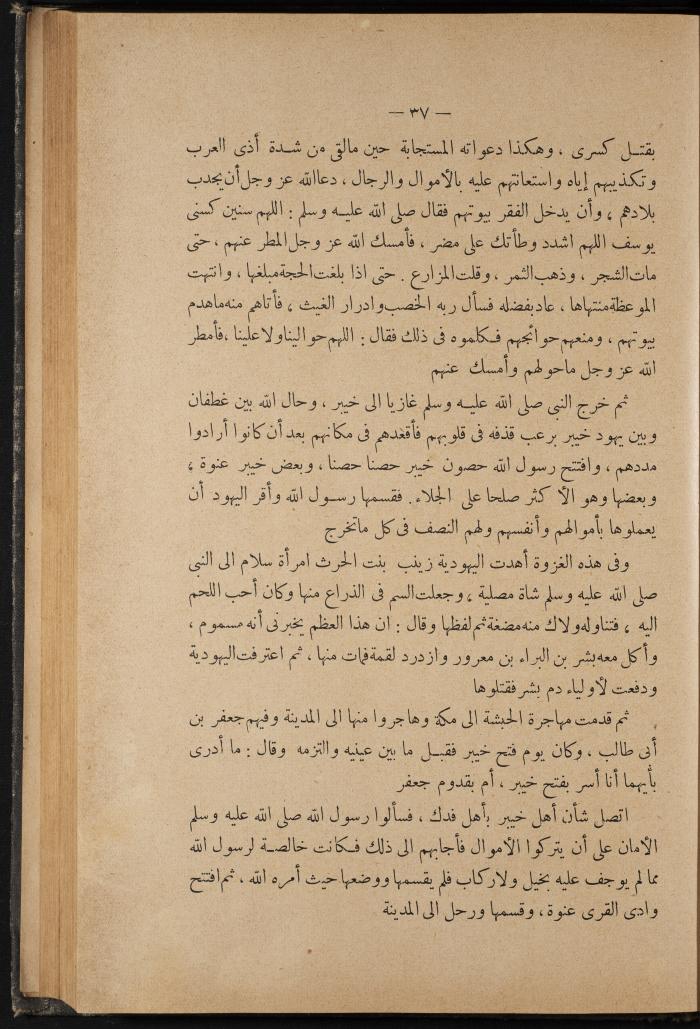 — ٣٧ —
بقتل كسرى ، وهكذا دعواته المستجابة حين مالقى من شدة أذى العرب
وتكذيبهم إياه واستعانتهم عليه بالأموال والرجال ، دعا الله عز وجل أن يجدب
بلادهم ، وأن يدخل الفقر بيوتهم فقال صلى الله عليه وسلم : اللهم سنين كسنى
يوسف اللهم اشدد وطأتك على مضر ، فأمسك الله عز وجل المطر عنهم ، حتى
مات الشجر ، وذهب الثمر ، وقلت المزارع . حتى اذا بلغت الحجة مبلغها ، وانتهت
الموعظة منتهاها ، عاد بفضله فسأل ربه الخصب وادرار الغيث ، فأتاهم منه ماهدم
بيوتهم ، ومنعهم حوائجهم فكلموه فى ذلك فقال : اللهم حوالينا ولا علينا ، فأمطر
الله عز وجل ماحولهم وأمسك عنهم
ثم خرج النبى صلى الله عليه وسلم غازيا الى خيبر ، وحال الله بين غطفان
وبين يهود خيبر برعب قذفه فى قلوبهم فأقعدهم فى مكانهم بعد أن كانوا أرادوا
مددهم ، وافتتح رسول الله حصون خيبر حصنا حصنا ، وبعض خيبر عنوة ،
وبعضها وهو الأكثر صلحا على الجلاء . فقسمها رسول الله وأقر اليهود أن
يعملوها بأموالهم وأنفسهم ولهم النصف فى كل ماتخرج
وفى هذه الغزوة أهدت اليهودية زينب بنت الحرث امرأة سلام الى النبى
صلى الله عليه وسلم شاة مصلية ، وجعلت السم فى الذراع منها وكان أحب اللحم
اليه ، فتناوله ولاك منه مضغة ثم لفظها وقال : ان هذا العظم يخبرنى أنه مسموم ،
وأكل معه بشر بن البراء بن معرور وازدرد لقمة فمات منها ، ثم اعترفت اليهودية
ودفعت لأولياء دم بشر فقتلوها
ثم قدمت مهاجرة الحبشة الى مكة وهاجروا منها الى المدينة وفيهم جعفر بن
أبى طالب ، وكان يوم فتح خيبر فقبل ما بين عينيه والتزمه وقال : ما أدرى
بأيهما أنا أسر بفتح خيبر ، أم بقدوم جعفر
اتصل شأن أهل خيبر بأهل فدك ، فسألوا رسول الله صلى الله عليه وسلم
الأمان على أن يتركوا الأموال فأجابهم الى ذلك فكانت خالصة لرسول الله
مما لم يوجف عليه بخيل ولا ركاب فلم يقسمها ووضعها حيث أمره الله ، ثم افتتح
وادى القرى عنوة ، وقسمها ورحل الى المدينة